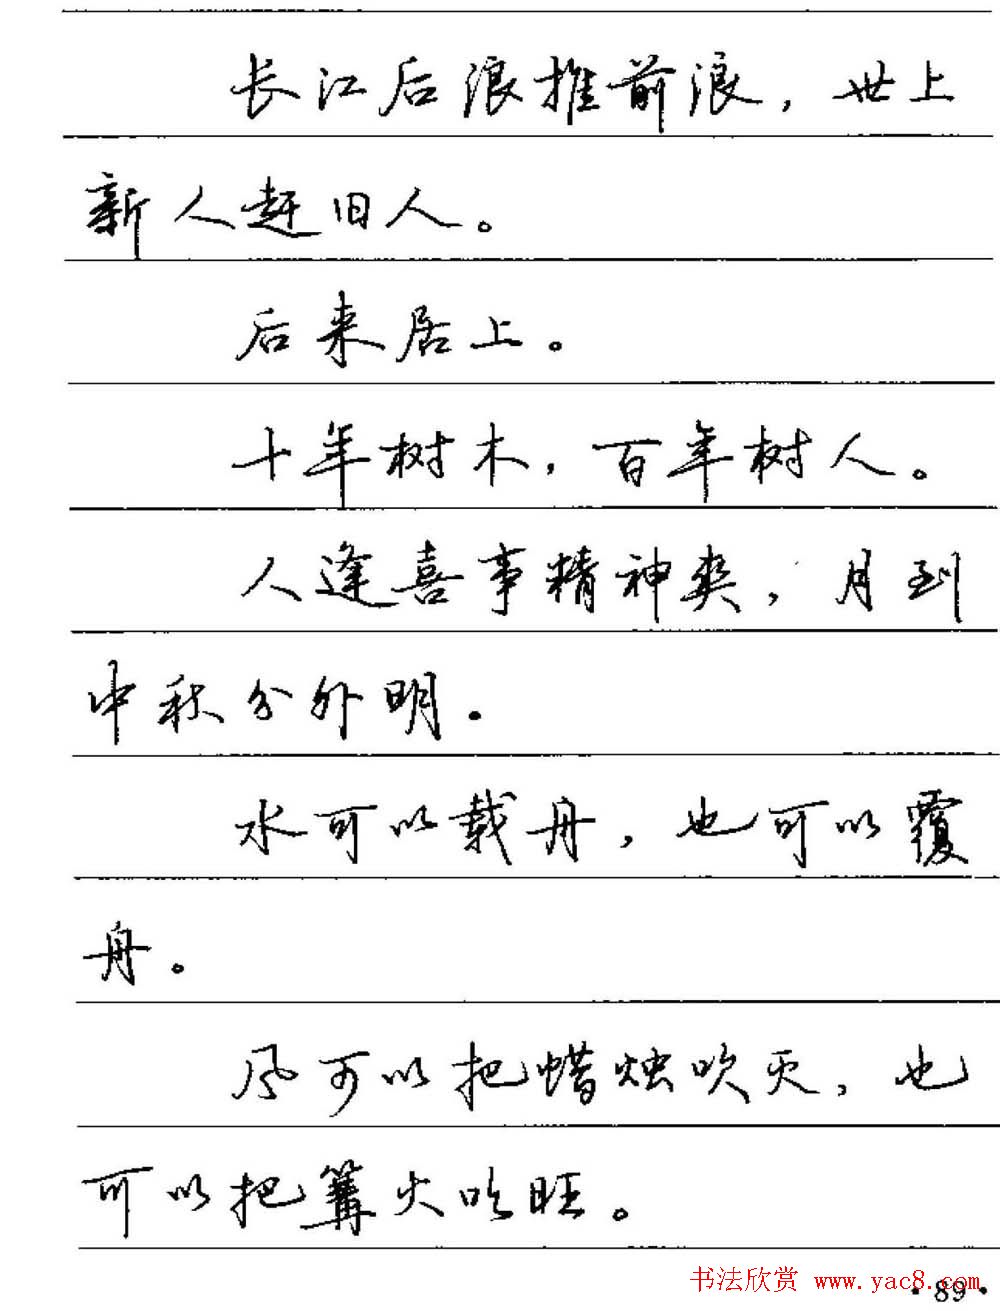 长江后浪推前浪，世上
新人赶旧人。
后来居上。
十年树木，百年树人。
人逢喜事精神爽，月到
中秋分外明。
水可以载舟，也可以覆
舟。
风可以把蜡烛吹灭，也
可以把篝火吹旺。
书法欣赏 www.yac8.com
·89·